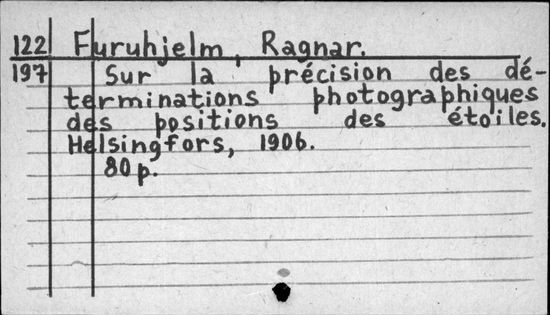 122 Furuhjelm, Ragnar.
197 Sur la précision des dé-
terminations photographiques
des positions des étoiles.
Helsingfors, 1906.
80 p.